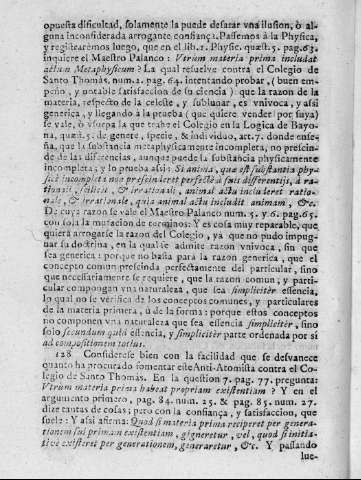 opuesta dificultad, solamente la puede desatar vna ilusion, ò al-
guna inconsiderada arrogante confiança. Passemos à la Physica,
y registrarèmos luego, que en el lib. 1. Physic. quæst. 5. pag. 63.
inquiere el Maestro Palanco: Vtrum materia prima includat
actum Metaphysicum? La qual resuelve contra el Colegio de
Santo Thomàs, num. 2. pag. 64. intentando probar, (buen em-
peño, y notable satisfaccion de su ciencia): que la razon de la
materia, respecto de la celeste, y sublunar, es vnivoca, y assi
generica, y llegando à la prueba (que quiere vender por suya)
se vale, ò vsurpa la que trahe el Colegio en la Logica de Bayo-
na, quæst. 5. de genere, specie, & individuo, art. 7. donde ense-
ña, que la substancia metaphysicamente incompleta, no prescin-
de de las diferencias, aunque puede la substancia physicamente
incompleta; y lo prueba assi: Si anima, quæ est substantia phy-
sicè incompleta non præscinderet perfectè à suis differentijs, à ra-
tionali, scilicèt, & irrationali, animal actu includeret ratio-
nale, & irrationale, quia animal actu includit animam, &c.
De cuya razon se vale el Maestro Palanco num. 5. y 6. pag. 65.
con sola la mutacion de terminos: Y es cosa muy reparable, que
quiera arrogarse la razon del Colegio, ya que no pudo impug-
nar su doctrina, en la qual se admite razon vnivoca, sin que
sea generica: porque no basta para la razon generica, que el
concepto comun prescinda perfectamente del particular, sino
que necessariamente se requiere, que la razon comun, y parti-
cular compongan vna naturaleza, que sea simplicitèr essencia,
lo qual no se verifica de los conceptos comunes, y particulares
de la materia primera, ù de la forma: porque estos conceptos
no componen vna naturaleza que sea essencia simplicitèr, sino
solo secundum quid essencia, y simplicitèr parte ordenada por sì
ad compositionem totius.
128 Considerese bien con la facilidad que se desvanece
quanto ha procurado fomentar este Anti-Atomista contra el Co-
legio de Santo Thomàs. En la question 7. pag. 77. pregunta:
Vtrum materia prima habeat propriam existentiam? Y en el
argumento primero, pag. 84. num. 25. & pag. 85. num. 27.
dize tantas de cosas; pero con la confiança, y satisfaccion, que
suele: Y assi afirma: Quod si materia prima reciperet per genera-
tionem sui primam existentiam, gigneretur, vel, quod si initia-
tivè existeret per generationem, generaretur, &c. Y passando
lue-